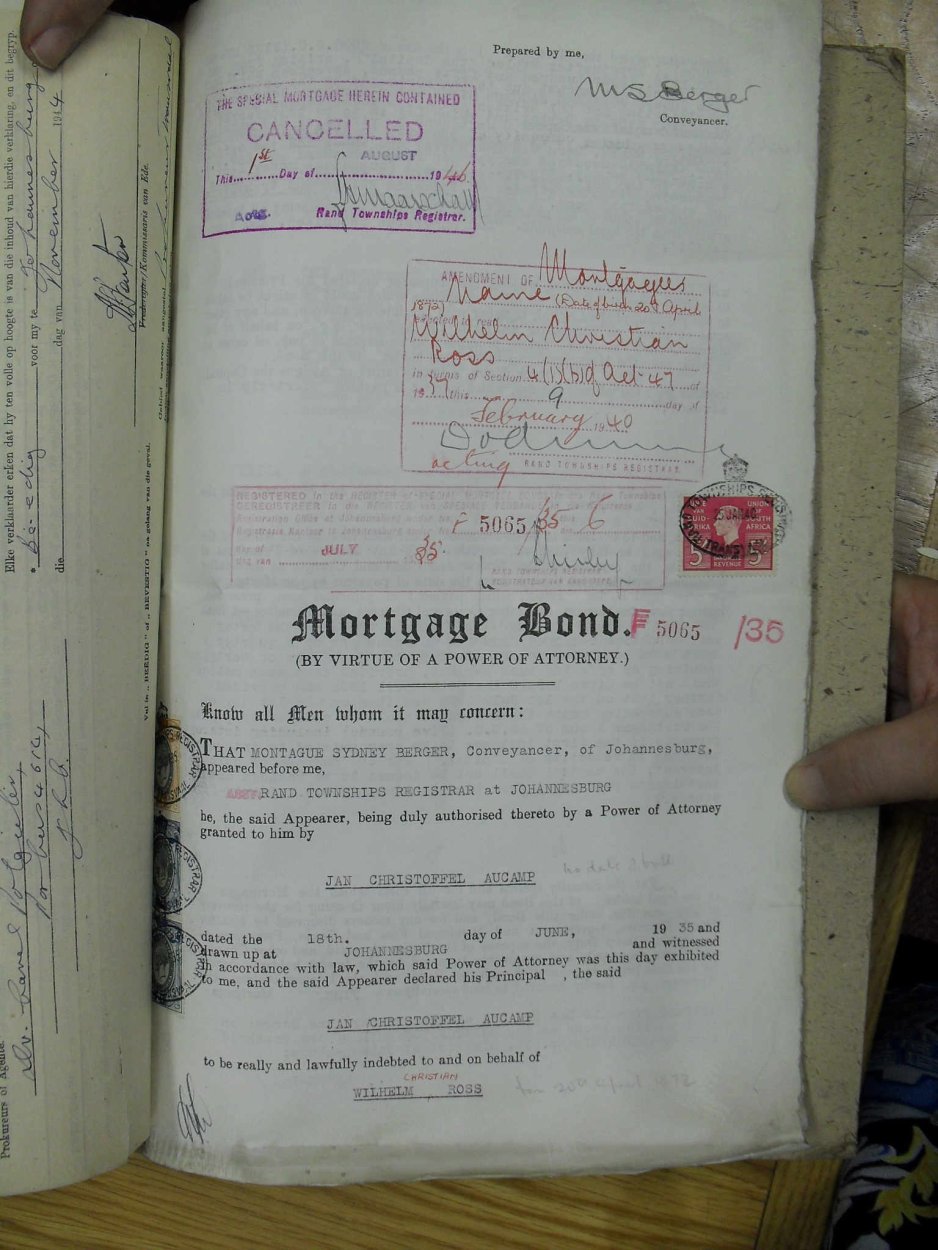 Prepared by me,
M S Berger
Conveyancer.
THE SPECIAL MORTGAGE HEREIN CONTAINED
CANCELLED
This 1st Day of AUGUST 19
Rand Townships Registrar.
AMENDMENT OF Mortgagees
Name (Date of birth 20th April
1872)
Wilhelm Christian
Ross
in terms of Section 4(1)(b) of Act 47 of
1937 this 9 day of
February 1940
acting RAND TOWNSHIPS REGISTRAR
REGISTERED in the REGISTER of
F 5065/35
day of JULY 35
RAND TOWNSHIPS REGISTRAR
UNION
SOUTH
AFRICA
REVENUE
Mortgage Bond. F 5065 /35
(BY VIRTUE OF A POWER OF ATTORNEY.)
Know all Men whom it may concern:
THAT MONTAGUE SYDNEY BERGER, Conveyancer, of Johannesburg,
appeared before me,
RAND TOWNSHIPS REGISTRAR at JOHANNESBURG
he, the said Appearer, being duly authorised thereto by a Power of Attorney
granted to him by
JAN CHRISTOFFEL AUCAMP
dated the 18th. day of JUNE, 19 35 and
drawn up at JOHANNESBURG and witnessed
in accordance with law, which said Power of Attorney was this day exhibited
to me, and the said Appearer declared his Principal , the said
JAN CHRISTOFFEL AUCAMP
to be really and lawfully indebted to and on behalf of
CHRISTIAN
WILHELM ROSS
Elke verklaarder erken dat hy ten volle op hoogte is van die inhoud van hierdie verklaring, en dit begryp.
Be-edig voor my te Johannesburg
die dag van November 1944
Vrederegter/Kommissaris van Ede.
Vul in „BEËDIG" of „BEVESTIG" na gelang van die geval.
Prokureurs of Agente.